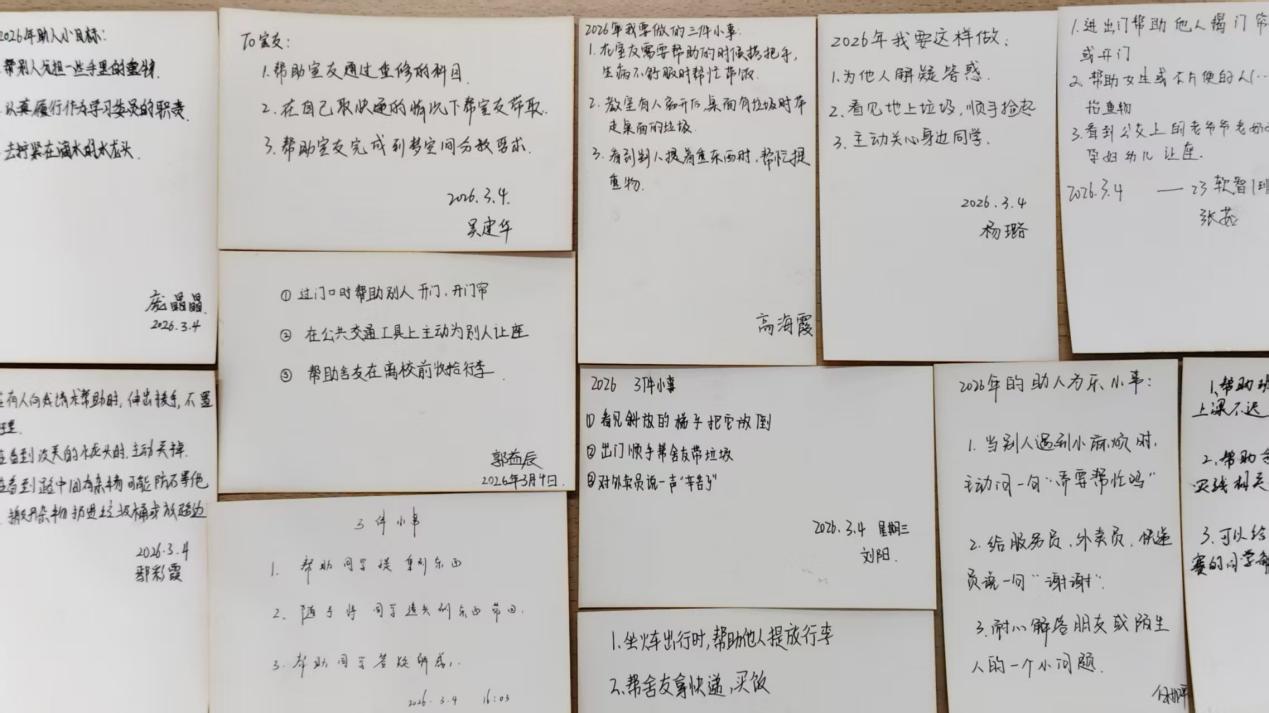 2026年助人小目标:
帮别人分担一些手里的重物
认真履行作为学习委员的职责
去拧紧在滴水的水龙头
庞晶晶
2026.3.4
To 室友:
1.帮助室友通过重修的科目.
2.在自己取快递的情况下帮室友带取.
3.帮助室友完成到梦空间分数要求.
2026.3.4.
吴建华
2026年我要做的三件小事:
1.在室友需要帮助的时候搭把手,
生病不舒服时帮忙带饭.
2.教室有人离开后,桌面有垃圾时带
走桌面的垃圾.
3.看到别人提着重东西时,帮忙提
重物.
高海霞
2026年我要这样做:
1.为他人解疑答惑.
2.看见地上垃圾,顺手捡起
3.主动关心身边同学.
2026.3.4
杨璐
1.进出门帮助他人揭门帘
或开门
2.帮助女生或不方便的人
抬重物
3.看到公交上的老爷爷老奶奶
孕妇幼儿让座.
2026.3.4 —— 23软智1班
张茹
① 过门口时帮助别人开门,开门帘
② 在公共交通工具上主动为别人让座
③ 帮助舍友在离校前收拾行李.
郭益辰
2026年3月4日.
有人向我请求帮助时,伸出援手,不置
理.
看到没关的水龙头时,主动关掉.
看到路中间有杂物可能
2026.3.4
郭彩霞
3件小事
1. 帮助同学提重的东西
2. 随手将同学遗失的东西带回.
3. 帮助同学答疑解惑.
2026.3.4 16:03
2026 3件小事
① 看见斜放的梯子把它放倒
② 出门顺手帮舍友带垃圾
③ 对外卖员说一声“辛苦了”
2026.3.4 星期三
刘阳.
1.坐火车出行时,帮助他人提放行李
2.帮舍友拿快递,买饭
2026年的助人为乐小事:
1.当别人遇到小麻烦时,
主动问一句“需要帮忙吗”
2.给服务员,外卖员,快递
员说一句“谢谢”.
3.耐心解答朋友或陌生
人的一个小问题.
1.帮助
上课不迟
2.帮助
3.可以给
赛的同学